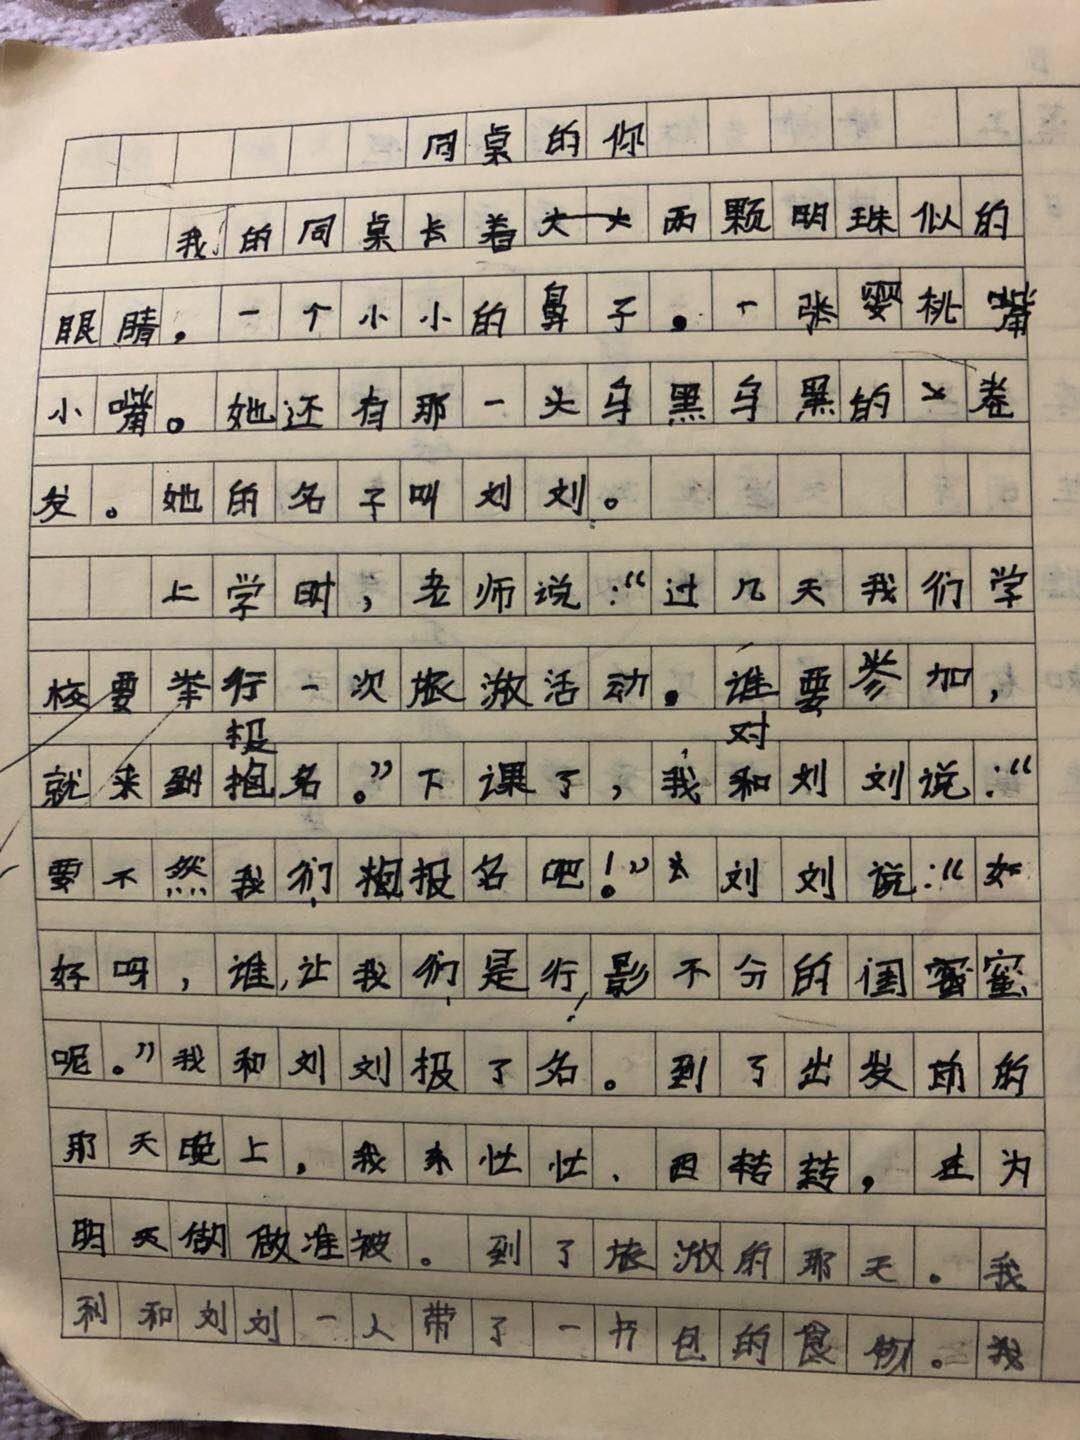 同桌的你
我的同桌长着两颗明珠似的
眼睛。一个小小的鼻子。一张婴桃嘴
小嘴。她还有那一头乌黑乌黑的卷
发。她的名子叫刘刘。
上学时，老师说：“过几天我们学
校要举行一次旅游活动。谁要参加，
报 对
就来到抱名。”下课了，我和刘刘说：“
要不然我们抱报名吧！”刘刘说：“如
好呀，谁让我们是行影不分的闺蜜蜜
呢。”我和刘刘报了名。到了出发前的
那天晚上，我东忙忙、西转转，在为
明天做做准被。到了旅游的那天。我
利和刘刘一人带了一书包的食物。我